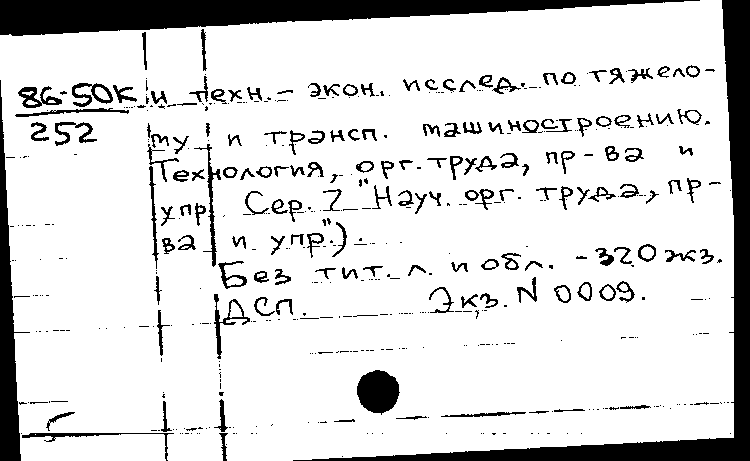 86-50К и техн.- экон. исслед. по тяжело-
252 му и трансп. машиностроению.
Технология, орг. труда, пр-ва и
упр. Сер. 7 "Науч. орг. труда, пр-
ва и упр.").
Без тит. л. и обл. - 320 экз.
ДСП. Экз. N 0009.